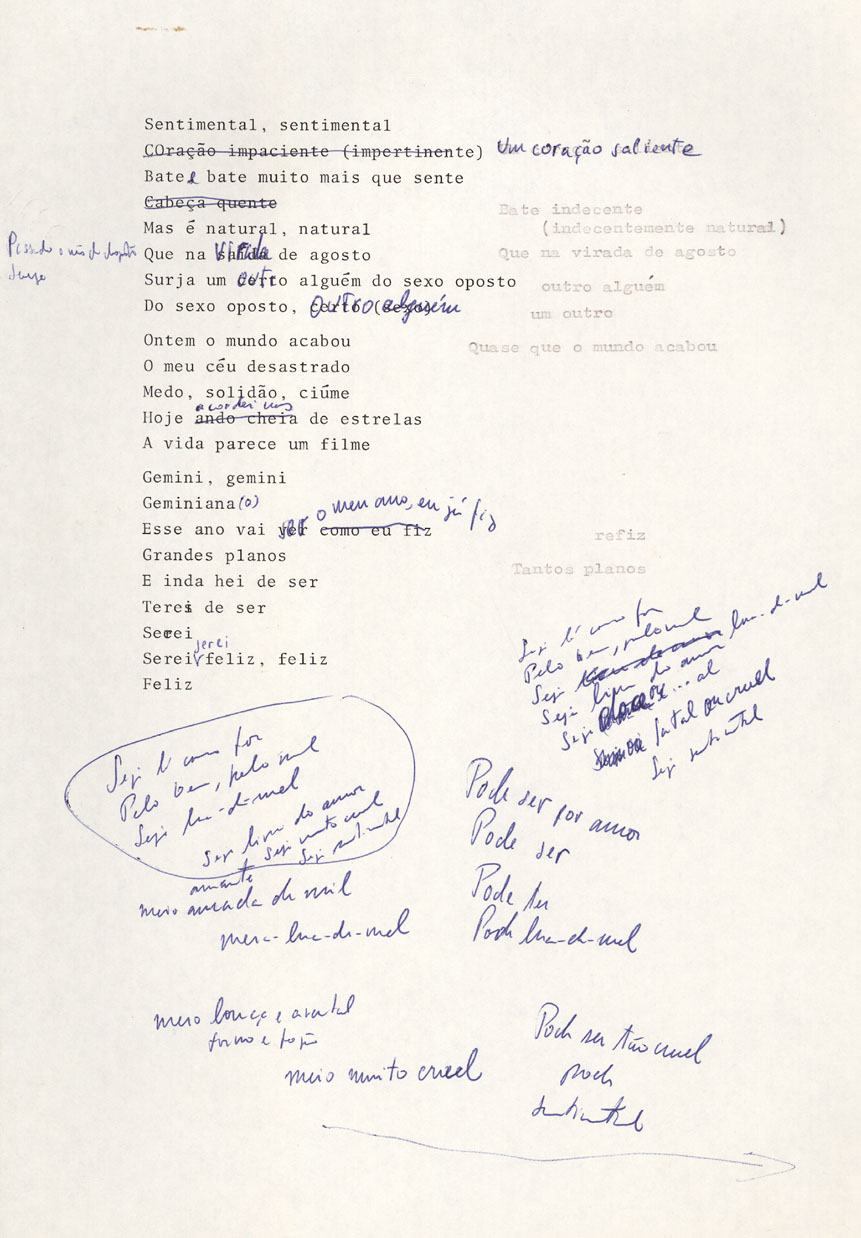 Sentimental, sentimental
COração impaciente (impertinente) Um coração saliente
Bate e bate muito mais que sente
Cabeça quente
Bate indecente
(indecentemente natural)
Mas é natural, natural
Que na virada de agosto
Que na virada de agosto
Surja um outro alguém do sexo oposto
outro alguém
Do sexo oposto, outro alguém
um outro
Ontem o mundo acabou
Quase que o mundo acabou
O meu céu desastrado
Medo, solidão, ciúme
acordei nas
Hoje ando cheia de estrelas
A vida parece um filme
Gemini, gemini
Geminiana(o)
Esse ano vai ser como eu fiz o meu ano, eu já fiz
refiz
Grandes planos
Tantos planos
E inda hei de ser
Terei de ser
Serei
serei
Serei feliz, feliz
Feliz
Seja lá como for
Pelo bem, pelo mal
Seja lua-de-mel
Seja livro do amor
Seja
fatal ou cruel
Seja sentimental
Seja lá como for
Pelo bem, pelo mal
Seja lua-de-mel
Seja muito cruel
Seja sentimental
amante
meio amada de mil
meia-lua-de-mel
Pode ser por amor
Pode ser
Pode ser
Pode lua-de-mel
meio louça e
meio muito cruel
Pode ser tão cruel
pode
sentimental